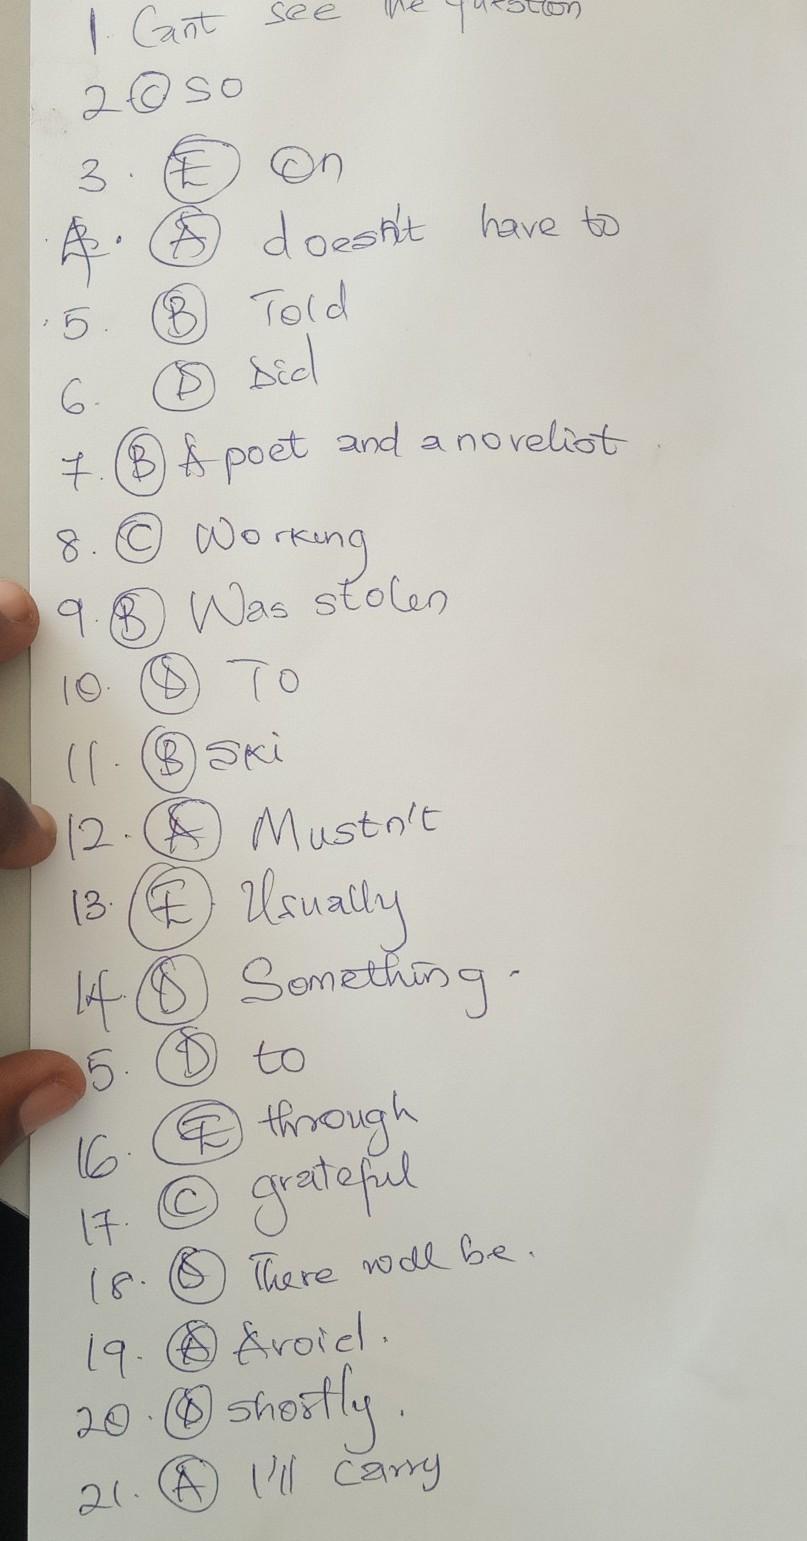 1. Cant see the question
2 C so
3. E On
4. A doesn't have to
5. B Told
6. D Did
7. B A poet and a novelist
8. C Working
9. B Was stolen
10. D To
11. B Ski
12. A Mustn't
13. E Usually
14. D Something.
5. D to
16. E through
17. C grateful
18. D There will be.
19. A Avoid.
20. D shortly.
21. A I'll carry